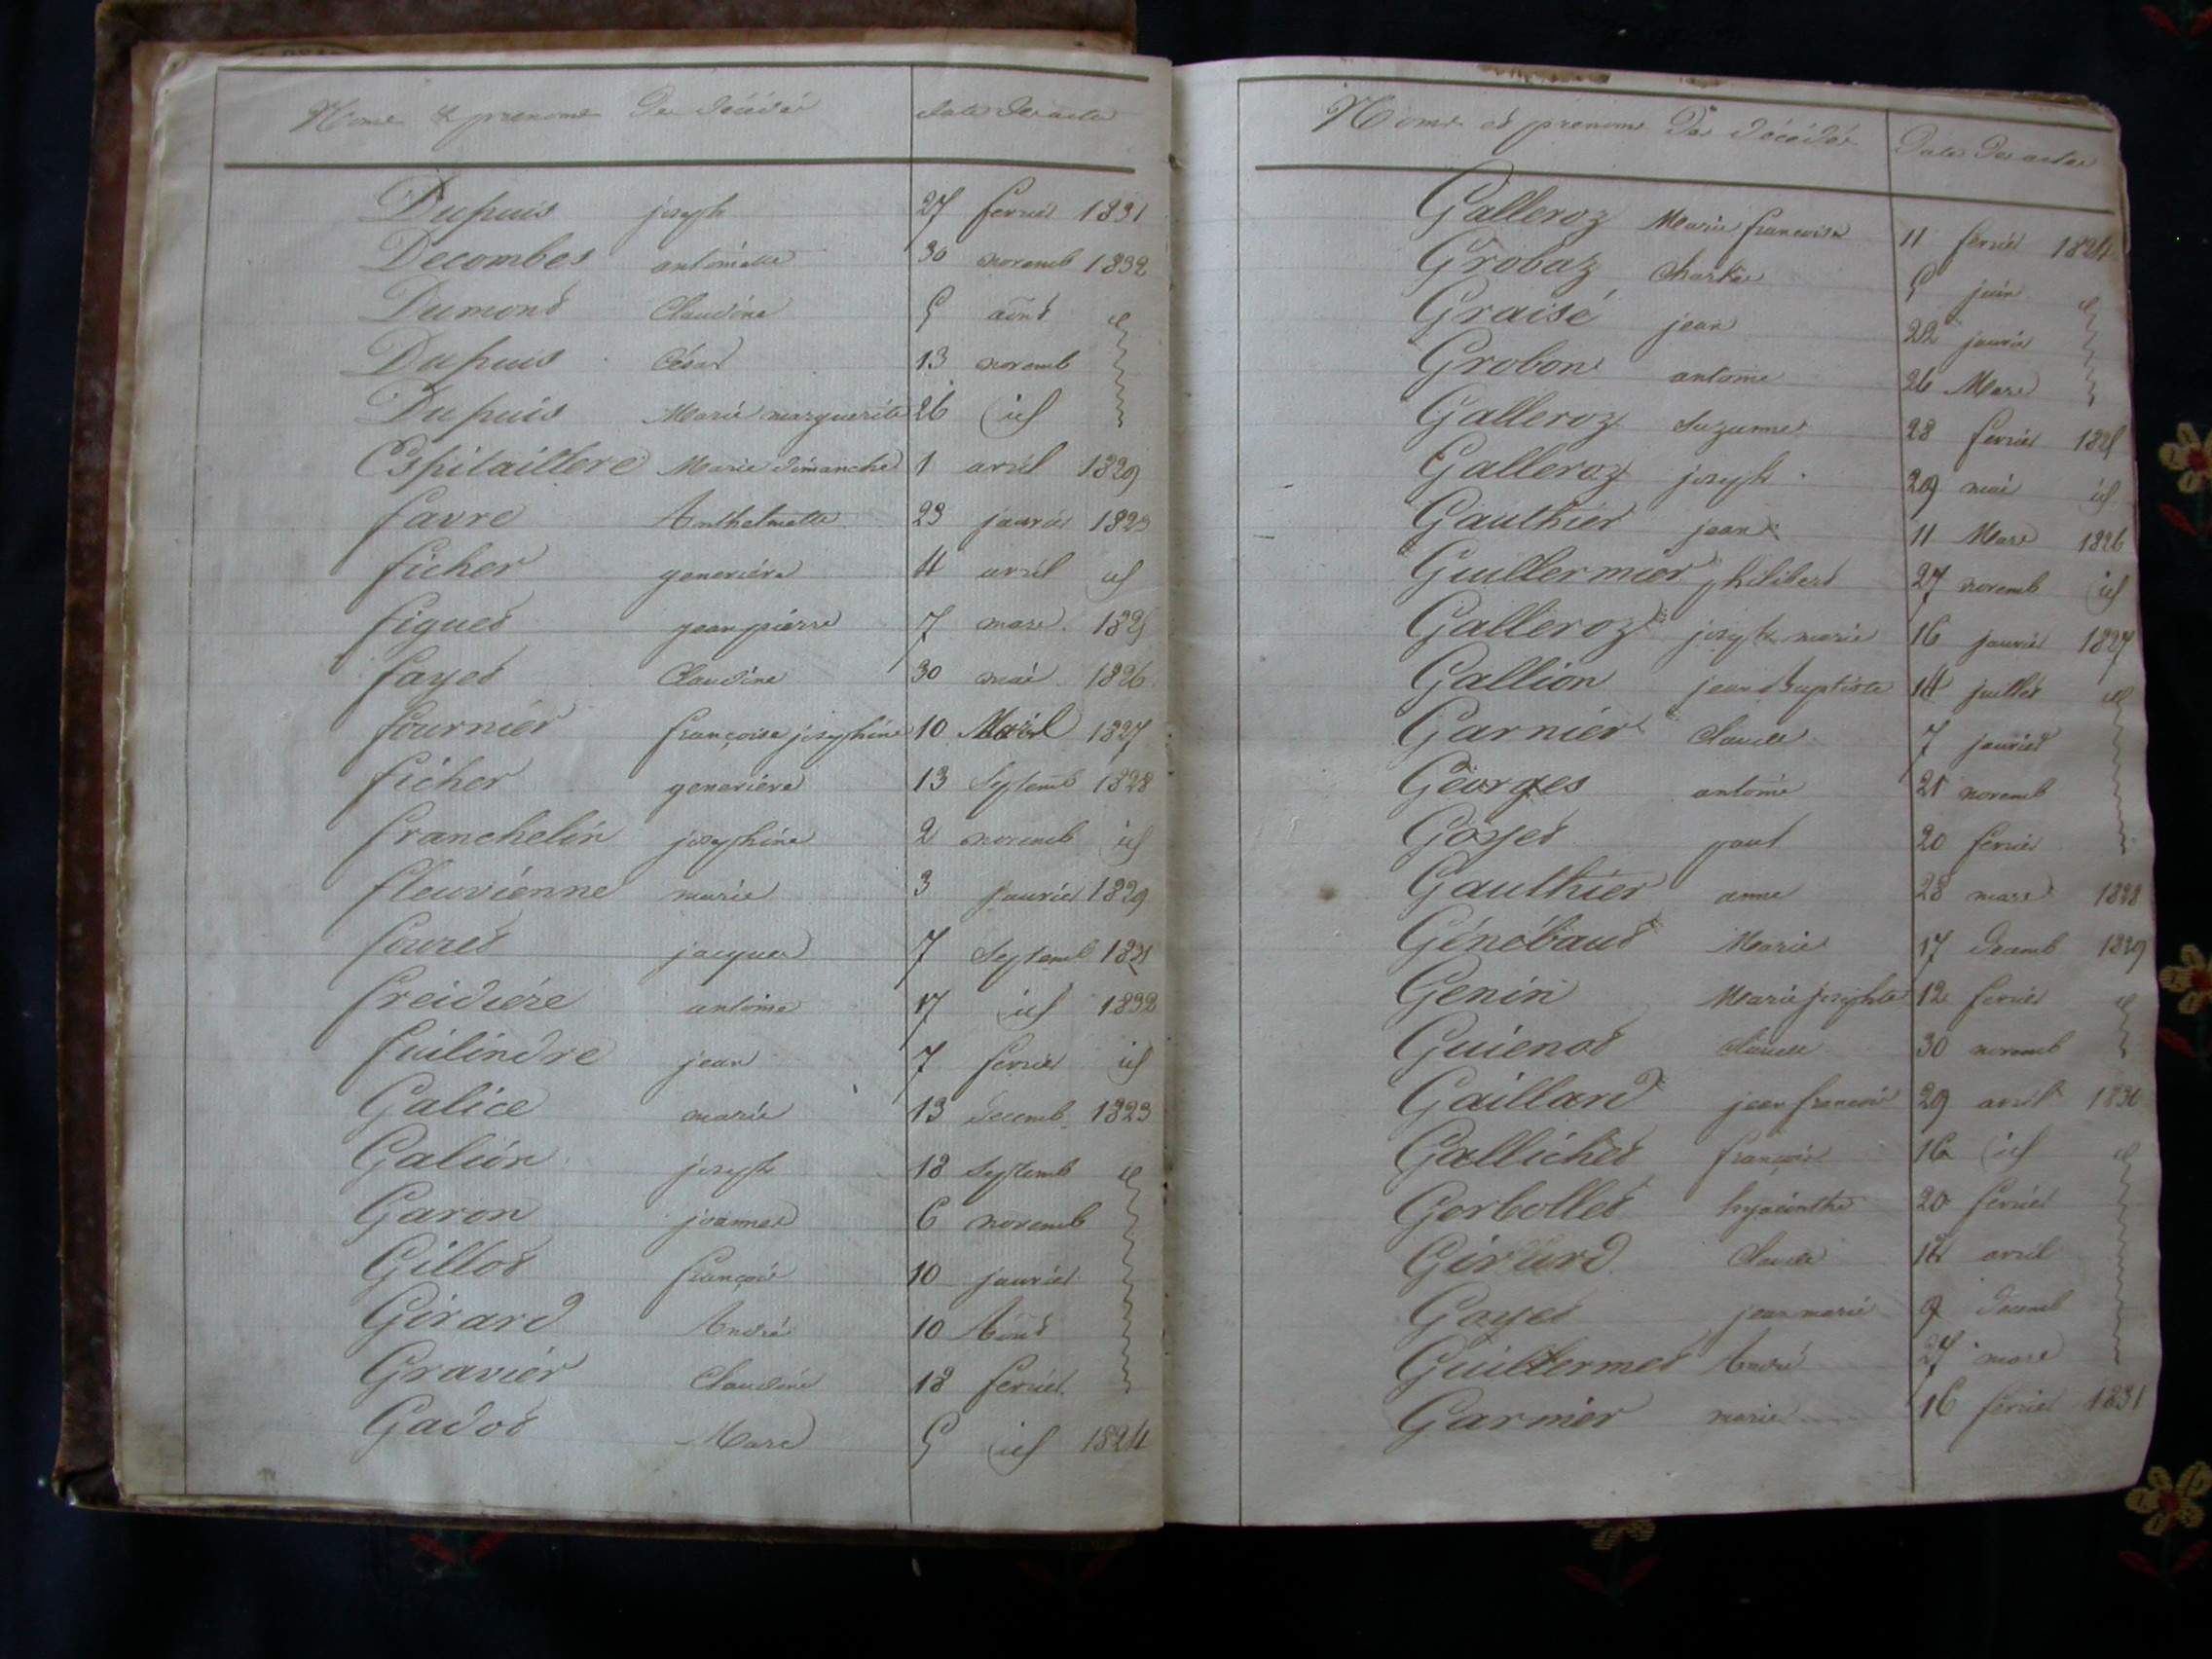 Noms & prenoms Des Décédés Date Des actes
Dupuis joseph 27 fevrier 1831
Decombes antoinette 30 novemb 1832
Dumont Claudine 5 août id
Dupuis César 13 novemb
Dupuis Marie marguerite 26 id
Espitaillere Marie dimanche 1 avril 1829
favre Anthelmette 23 janvier 1823
ficher genevieve 4 avril id
figuet jean pierre 7 mars 1825
fayet Claudine 30 mai 1826
fournier françoise josephine 10 1827
ficher genevieve 13 Septemb 1828
franchelin josephine 2 novemb id
fleuvienne marie 3 janvier 1829
fouret jacques 7 Septemb
freidiere antoine 17 id 1832
fuilindre jean 7 fevrier id
Galice marie 13 decemb 1823
Galion joseph 18 Septemb id
Garon 6 novemb
Gillot françois 10 janvier
Girard André 10 Août
Gravier Claudine 18 fevrier
Gadot Marc 5 id 1824
Noms et prenoms Des Décédés Date Des actes
Galleroz Marie francoise 11 fevrier 1824
Grobaz Charles 5 juin id
Graisé jean 22 janvier
Grobon antoine 26 Mars
Galleroz Suzanne 28 fevrier 1825
Galleroz joseph 29 mai id
Gauthier jean 11 Mars 1826
Guillermier philibert 27 novemb id
Galleroz joseph marie 16 janvier 1827
Gallion jean Baptiste 14 juillet id
Garnier Claude 7 janvier
Georges antoine 21 novemb
Goyet paul 20 fevrier
Gauthier anne 28 mars 1828
Génébaud Marie 17 decemb 1829
Genin Marie josephte 12 fevrier id
Guienot Claude 30 novemb
Gaillard jean francois 29 avril 1830
Gallichet françois 16 id id
Gerbollet hyacinthe 20 fevrier
Girard Claude avril
Goyet jean marie 9 decemb
Guillermet André 27 mars
Garnier marie 16 fevrier 1831